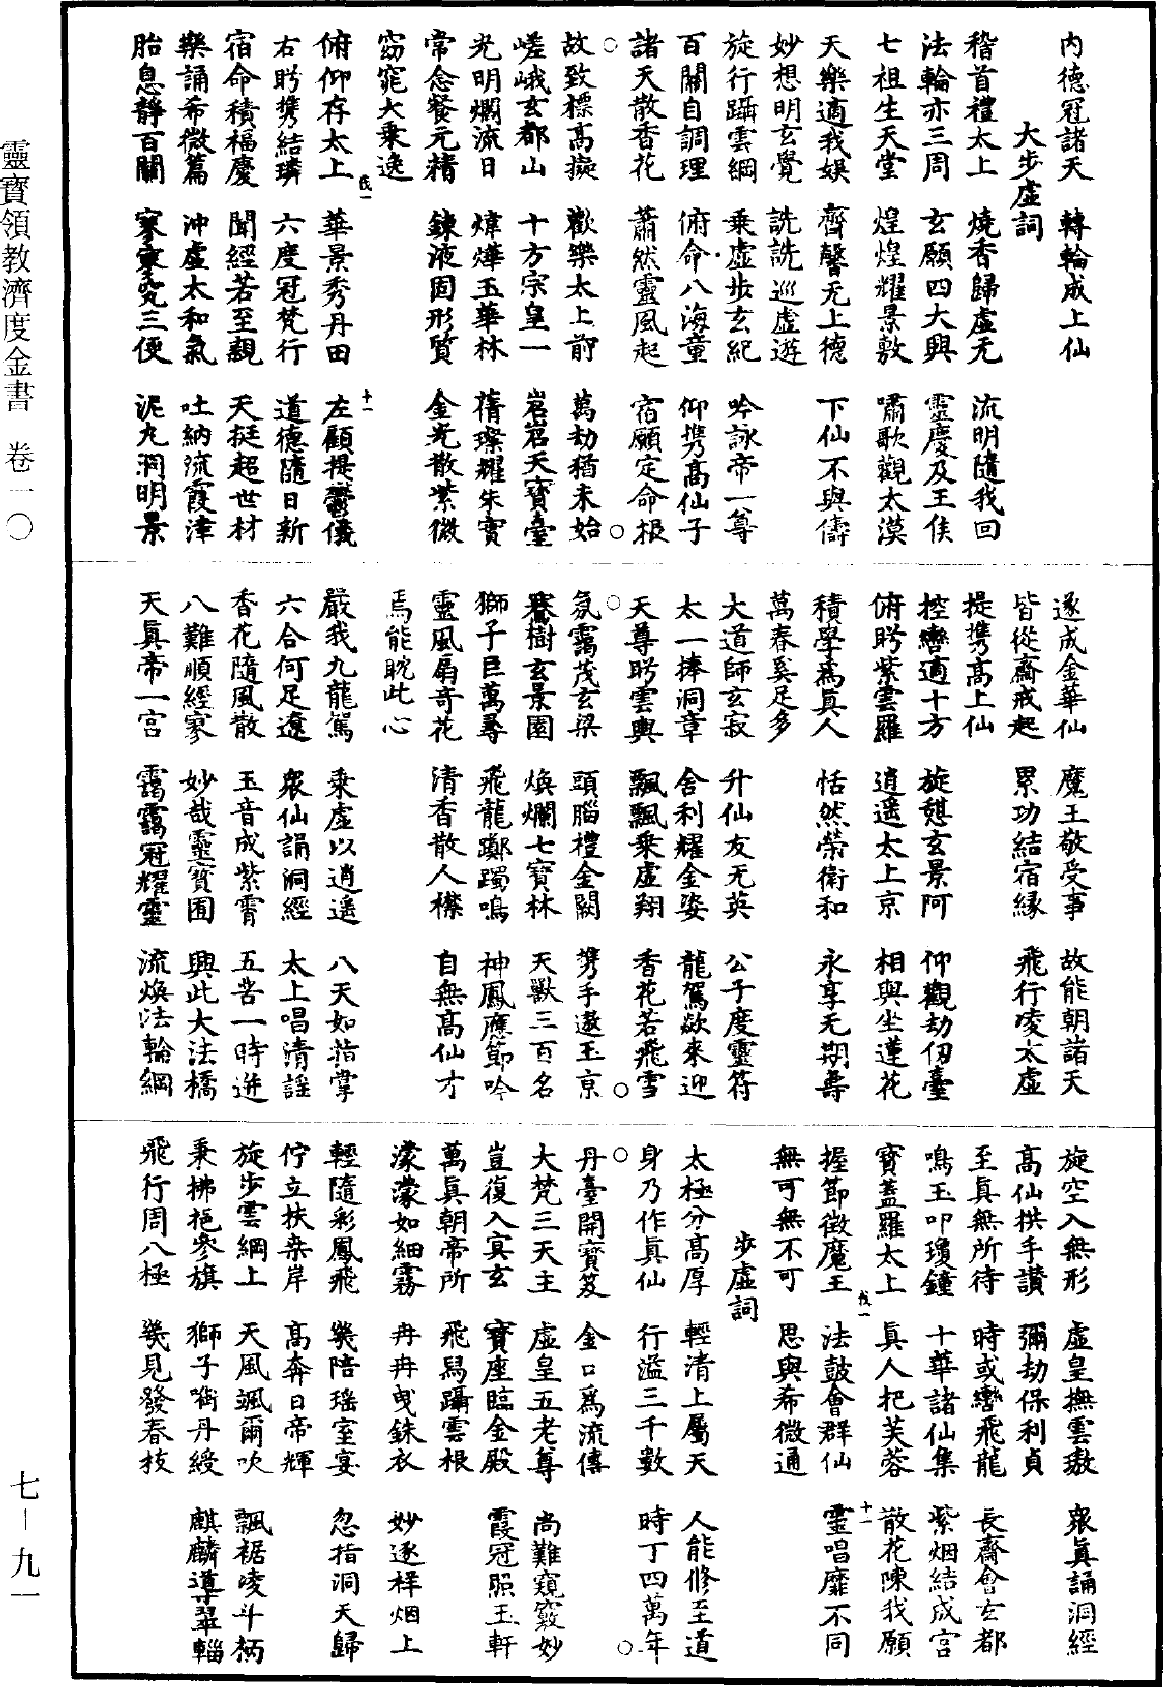 內德冠諸天 轉輪成上仙
大步虛詞
稽首禮太上 燒香歸虛无 流明隨我回
法輪亦三周 玄願四大興 靈慶及王侯
七祖生天堂 煌煌耀景敷 嘯歌觀太漠
天樂適我娛 齊馨无上德 下仙不與儔
妙想明玄覺 詵詵巡虛遊
旋行躡雲綱 乘虛步玄紀 吟詠帝一尊
百關自調理 俯命八海童 仰携高仙子
諸天散香花 蕭然靈風起 宿願定命根
故致標高擬 歡樂太上前 萬劫猶未始
嵯峨玄都山 十方宗皇一 岧岧天寶臺
光明爛流日 煒燁玉華林 蒨璨耀朱實
常念餐元精 鍊液固形質 金光散紫微
窈窕大乘逸
俯仰存太上 華景秀丹田 左顧提鬱儀
右盻携結璘 六度冠梵行 道德隨日新
宿命積福慶 聞經若至親 天挺超世材
樂誦希微篇 沖虛太和氣 吐納流霞津
胎息靜百關 寥寥究三便 泥丸洞明景
遂成金華仙 魔王敬受事 故能朝諸天
皆從齋戒起 累功結宿緣 飛行凌太虛
提携高上仙
控轡適十方 旋憩玄景阿 仰觀劫仞臺
俯盻紫雲羅 逍遥太上京 相與坐蓮花
積學爲真人 恬然榮衛和 永享无期壽
萬春奚足多
大道師玄寂 升仙友无英 公子度靈符
太一捧洞章 舍利耀金姿 龍駕欻來迎
天尊盻雲輿 飄飄乘虛翔 香花若飛雪
氛靄茂玄梁 頭腦禮金闕 携手遨玉京
騫樹玄景園 煥爛七寶林 天獸三百名
獅子巨萬尋 飛龍躑躅鳴 神鳳應節吟
靈風扇奇花 清香散人襟 自無高仙才
焉能耽此心
嚴我九龍駕 乘虛以逍遥 八天如指掌
六合何足遼 衆仙誦洞經 太上唱清謠
香花隨風散 玉音成紫霄 五苦一時迸
八難順經寥 妙哉靈寶囿 興此大法橋
天真帝一宮 靄靄冠耀靈 流煥法輪綱
旋空入無形 虛皇撫雲璈 衆真誦洞經
高仙拱手讃 彌劫保利貞
至真無所待 時或轡飛龍 長齋會玄都
鳴玉叩瓊鐘 十華諸仙集 紫烟結成宮
寶蓋羅太上 真人把芙蓉 散花陳我願
握節徵魔王 法鼓會群仙 靈唱靡不同
無可無不可 思與希微通
步虛詞
太極分高厚 輕清上屬天 人能修至道
身乃作真仙 行溢三千數 時丁四萬年
丹臺開寶笈 金口爲流傳
大梵三天主 虛皇五老尊 尚難窺竅妙
豈復入冥玄 寶座臨金殿 霞冠照玉軒
萬真朝帝所 飛舄躡雲根
濛濛如細霧 冉冉曳銖衣 妙逐祥烟上
輕隨彩鳳飛 幾陪瑶室宴 忽指洞天歸
佇立扶桑岸 高奔日帝輝
旋步雲綱上 天風颯爾吹 飄裾凌斗柄
秉拂挹參旗 獅子噙丹綬 麒麟導翠輜
飛行周八極 幾見發春枝
靈寶領教濟度金書 卷一〇
七-九一